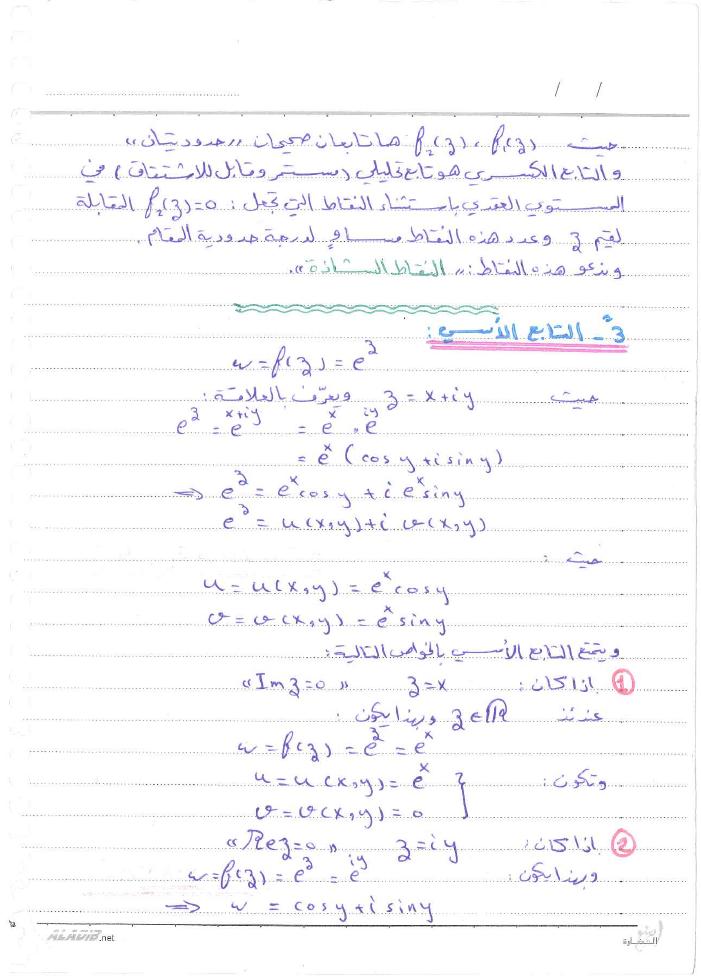 / /
حيث f₁(z) ، f₂(z) هما تابعان صحيحان "حدوديتان"
والتابع الكسري هو تابع تحليلي (مستمر وقابل للاشتقاق) في
المستوي العقدي باستثناء النقاط التي تجعل : f₂(z)=0 المقابلة
لقيم z وعدد هذه النقاط مساوٍ لدرجة حدودية المقام .
وندعو هذه النقاط : "النقاط الشاذة".
3ً - التابع الأسي :
w = f(z) = e^z
حيث z = x+iy ويعرّف بالعلاقة :
e^z = e^(x+iy) = e^x . e^(iy)
= e^x (cos y + i sin y)
⇒ e^z = e^x cos y + i e^x sin y
e^z = u(x,y) + i v(x,y)
حيث :
u = u(x,y) = e^x cos y
v = v(x,y) = e^x sin y
ويتمتع التابع الأسي بالخواص التالية :
1 إذا كان : z = x "Im z = 0"
عندئذ z ∈ ℝ وبهذا يكون :
w = f(z) = e^z = e^x
وتكون : u = u(x,y) = e^x }
v = v(x,y) = 0
2 إذا كان : z = iy "Re z = 0"
وبهذا يكون : w = f(z) = e^z = e^(iy)
⇒ w = cos y + i sin y
ALADIB.net